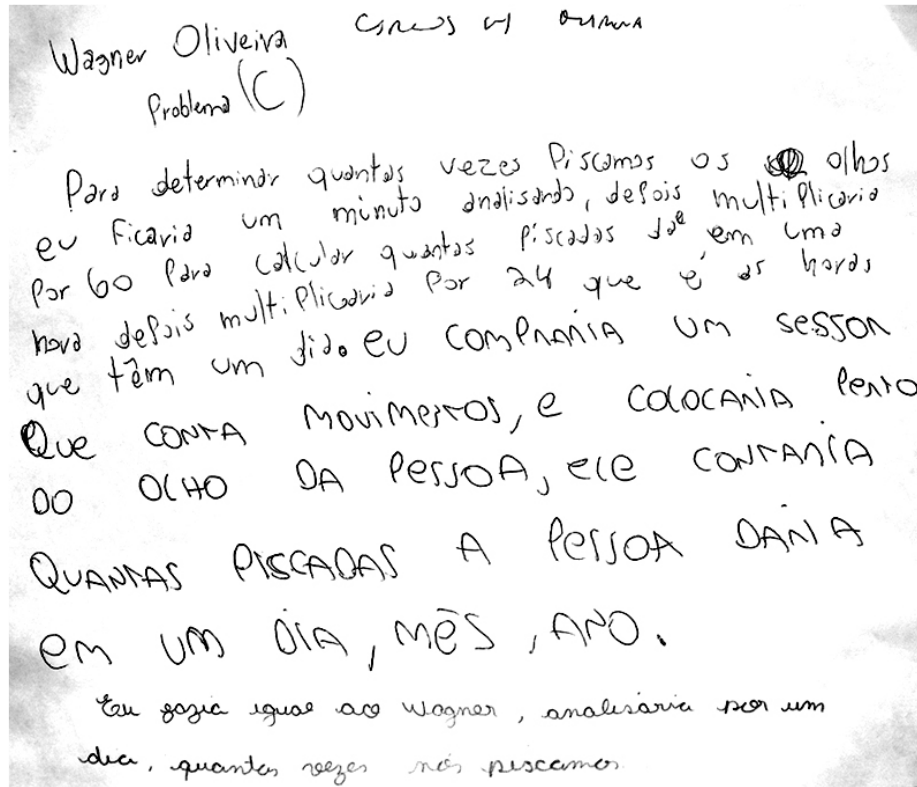 Wagner Oliveira
Problema (C)
Para determinar quantas vezes Piscamos os olhos
eu Ficaria um minuto analisando, depois multiplicaria
Por 60 Para calcular quantas piscadas em uma
hora depois multiplicaria Por 24 que é as horas
que têm um dia. eu COMPRARIA UM SESSOR
QUE CONTA MOVIMENTOS, e COLOCARIA PERTO
DO OLHO DA PESSOA, ELE CONTARIA
QUANTAS PISCADAS A PESSOA DARIA
EM UM DIA, MÊS, ANO.
Eu fazia igual ao Wagner, analisaria por um
dia, quantas vezes nós piscamos